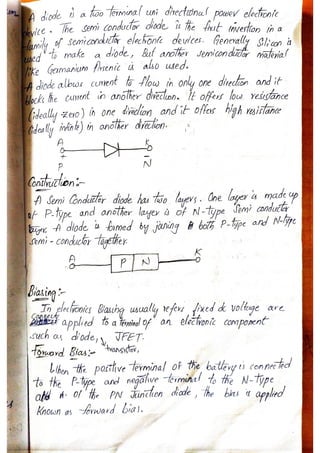 A diode is a two terminal uni directional power electronic
device. The semi conductor diode is the first invention in a
family of semiconductor electronic devices. Generally Silicon is
used to make a diode, But another semiconductor material
like Germanium Arsenic is also used.
A diode allows current to flow in only one direction and it
blocks the current in another direction. It offers low resistance
(ideally zero) in one direction and it offers high resistance
(ideally infinite) in another direction.
A
P N
Construction:-
A Semi Conductor diode has two layers. One layer is made up
of P-type and another layer is of N-type Semi conductor
A diode is formed by joining both P-type and N-type
semi-conductor together.
A K
P N
Biasing:-
In electronics Biasing usually refers fixed dc voltage are
applied to a terminal of an electronic component
such as diode, transistor, JFET.
Forward Bias:-
When the positive terminal of the battery is connected
to the P-type and negative terminal to the N-type
of the PN Junction diode, the bias is applied
Known as forward bias.